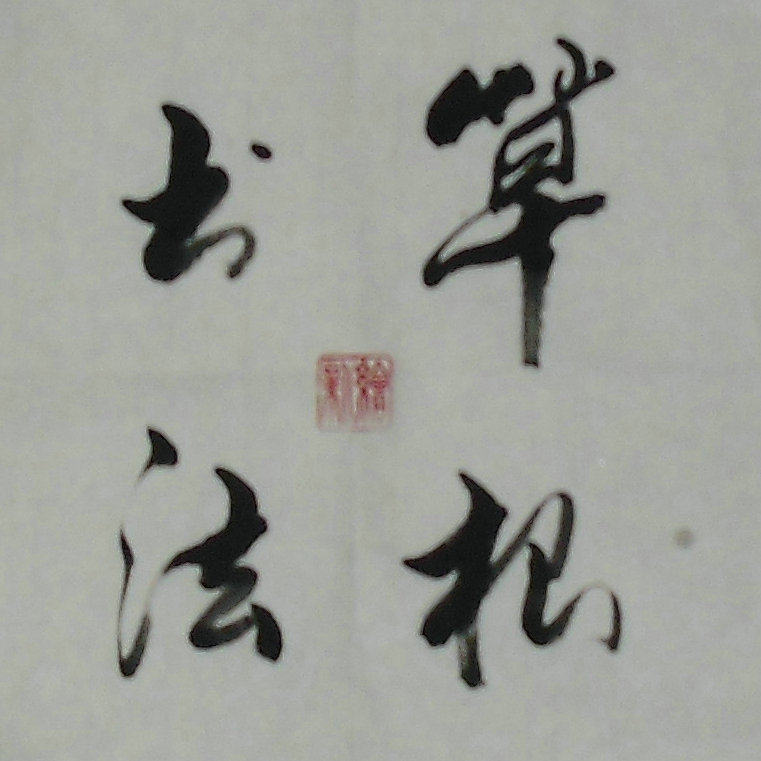 草根
书法